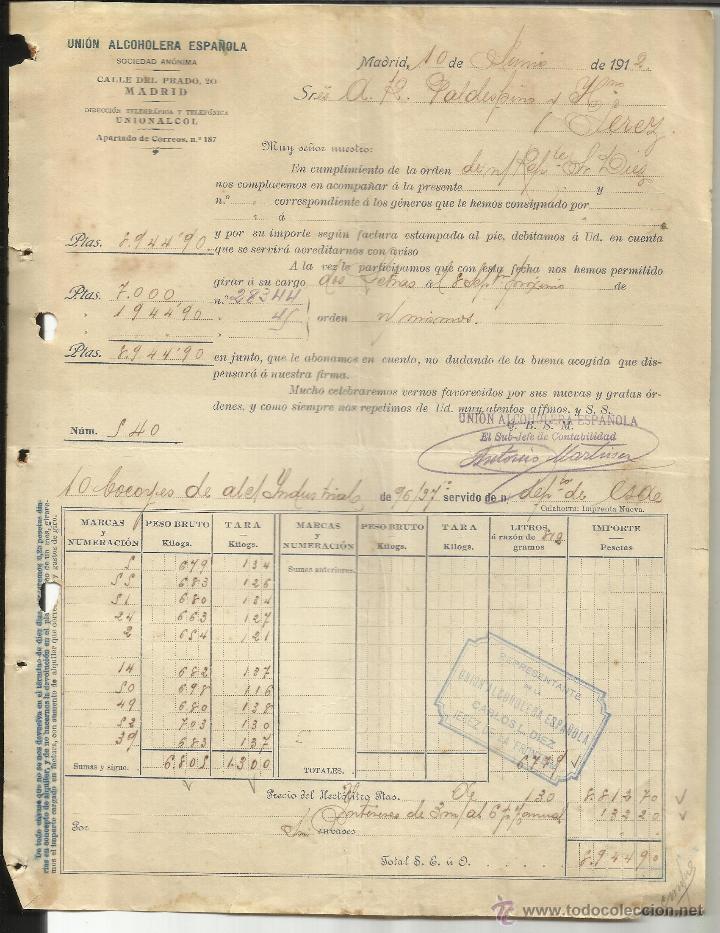 UNIÓN ALCOHOLERA ESPAÑOLA
SOCIEDAD ANÓNIMA
CALLE DEL PRADO, 20
MADRID
DIRECCIÓN TELEGRÁFICA Y TELEFÓNICA
UNIONALCOL
Apartado de Correos, n.º 187
Madrid, 10 de Junio de 1912
Sres A. R. Valdespino y Hno
Jerez.
Muy señor nuestro:
En cumplimiento de la orden de n/ Repte Sr. Diez
nos complacemos en acompañar á la presente y
n.º correspondiente á los géneros que le hemos consignado por
á
Ptas. 8.944'90 y por su importe según factura estampada al pie, debitamos á Ud. en cuenta
que se servirá acreditarnos con aviso
A la vez le participamos que con esta fecha nos hemos permitido
Ptas. 7.000 girar á su cargo dos letras al 8 Sept. próximo de
" 1944.90 n.º 28344 45 orden n/ mismos.
Ptas. 8.944'90 en junto, que le abonamos en cuenta, no dudando de la buena acogida que dis-
pensará á nuestra firma.
Mucho celebraremos vernos favorecidos por sus nuevas y gratas ór-
denes, y como siempre nos repetimos de Ud. muy atentos affmos. y S. S.
Q. B. S. M.
UNIÓN ALCOHOLERA ESPAÑOLA
El Sub-Jefe de Contabilidad
Antonio Martinez
Núm. 540
10 bocoyes de alcl Industrial de 96/97º servido de n/ depto de esa
Calahorra: Imprenta Nueva.
MARCAS y NUMERACIÓN PESO BRUTO Kilogs. TARA Kilogs. MARCAS y NUMERACIÓN PESO BRUTO Kilogs. TARA Kilogs. LITROS á razón de 812 gramos IMPORTE Pesetas
Sumas anteriores.
5 679 134
55 683 126
51 680 134
24 663 127
2 654 121
14 682 137
50 698 116
49 680 138
52 703 130
39 683 137
REPRESENTANTE
DE LA
UNIÓN ALCOHOLERA ESPAÑOLA
CARLOS L. DIEZ
JEREZ DE LA FRONTERA
Sumas y sigue. 6805 1300 TOTALES. 6779
Precio del Hectólitro Ptas. 130 8.812 70
Por Intereses de 3 m/ al 6 p% anual 132 20
Sin envases
Total S. E. ú O. 8.944 90